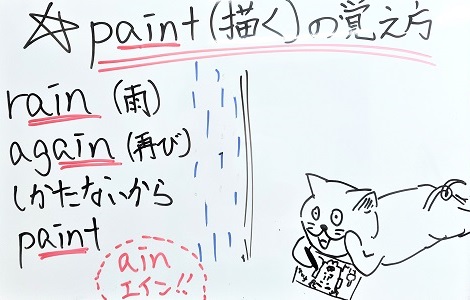 ☆paint(描く)の覚え方
rain (雨)
again (再び)
しかたないから
paint
ain
エイン!!